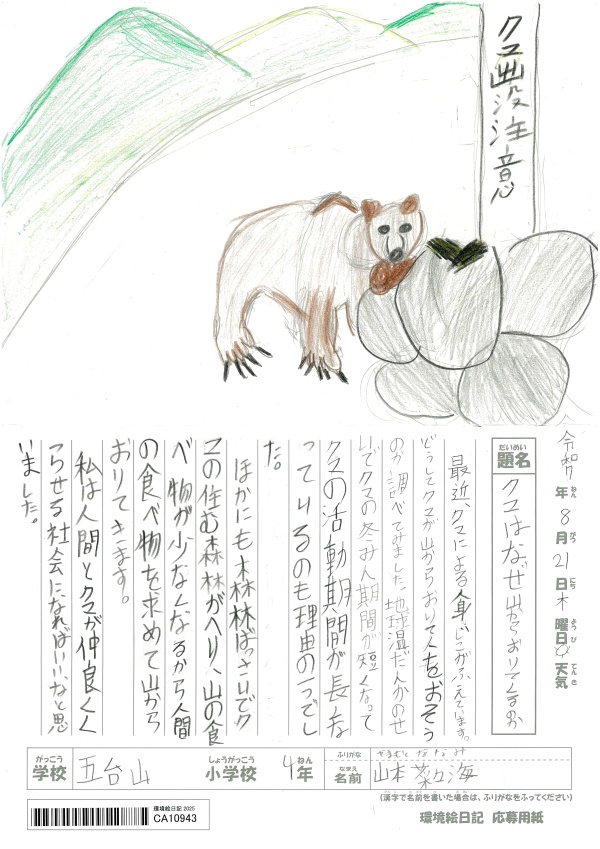 クマ出没注意
令和7年8月21日木曜日 天気
ねん がつ にち ようび てんき
だいめい
題名
クマはなぜ山からおりてくるのか
最近、クマによる人身じこがふえています。
どうしてクマが山からおりて人をおそう
のか調べてみました。地球温だんかのせ
いでクマの冬みん期間が短くなって
クマの活動期間が長くな
っているのも理由の一つでし
た。
ほかにも森林ばっさいでク
マの住む森林がへり、山の食
べ物が少なくなるから人間
の食べ物を求めて山から
おりてきます。
私は人間とクマが仲良くく
らせる社会になればいいなと思
いました。
がっこう
学校
五台山
しょうがっこう
小学校
4年
ねん
ふりがな
やまもと ななみ
なまえ
名前
山本 菜々海
(漢字で名前を書いた場合は、ふりがなをふってください)
環境絵日記 2025
CA10943
環境絵日記 応募用紙